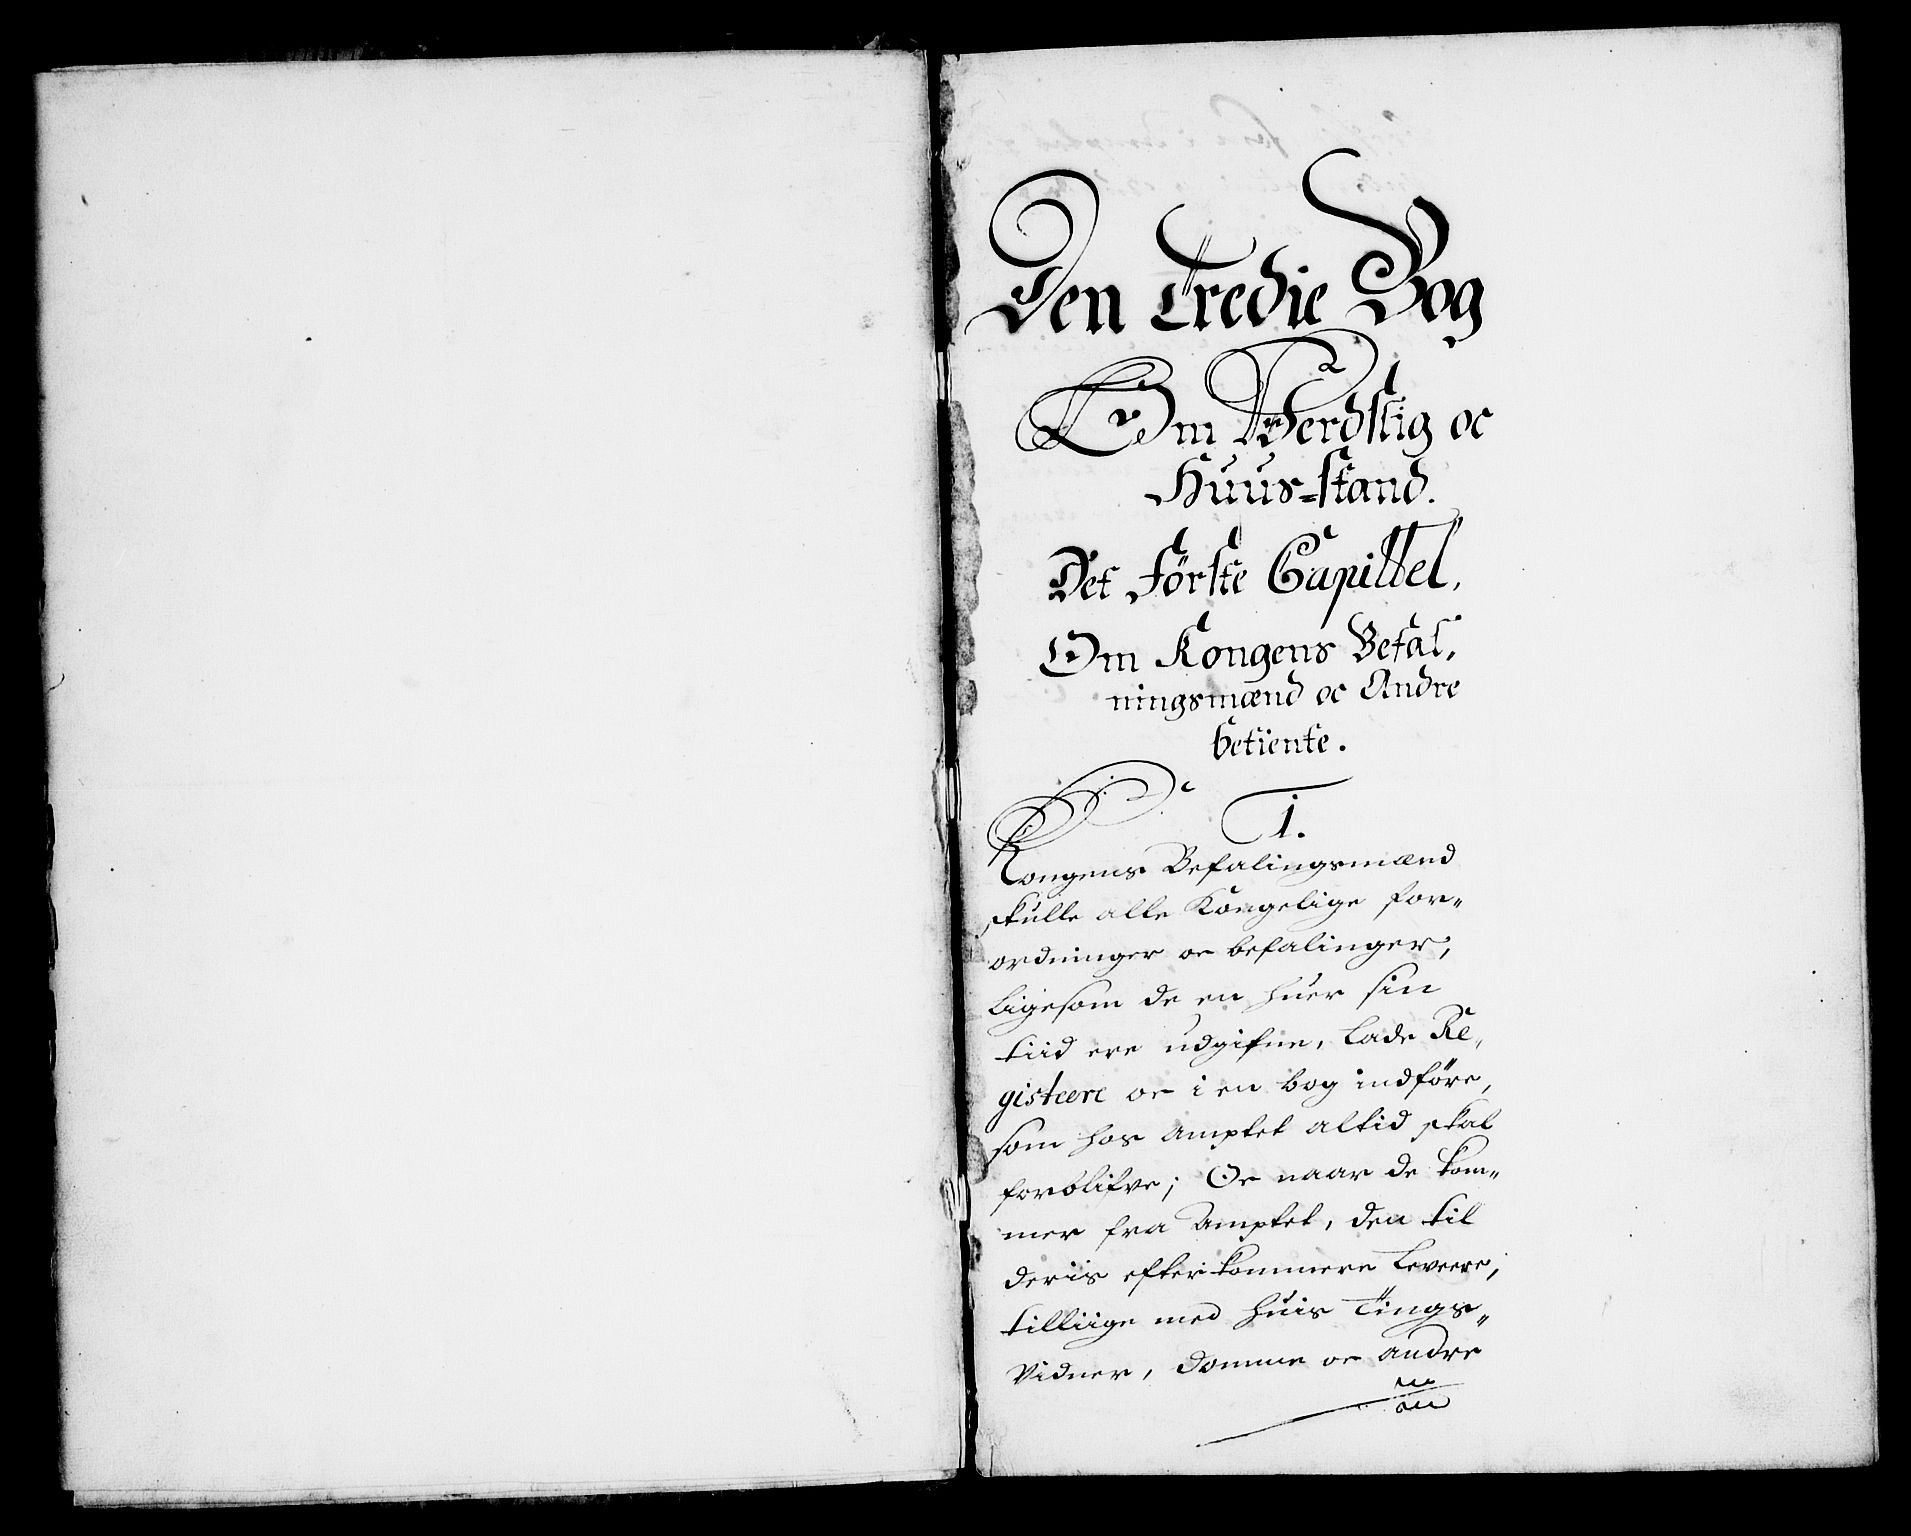 Den Tredie Bog
Om Werdslig oc
Huus=stand.
Det Første Capittel.
Om Kongens Befal„
ningsmænd oc Andre
betiente.
1.
Kongens Befalingsmænd
skulle alle Kongelige for„
ordninger oc befalinger,
ligesom de en huer sin
tiid ere udgifne, lade Re„
gisteere oc i en bog indføre,
som hos Amptet altid skal
forblifve; Oc naar de kom„
mer fra Amptet, den til
deris efterkommere levere,
tilliige med huis Tings„
Vidner, Domme oc andre